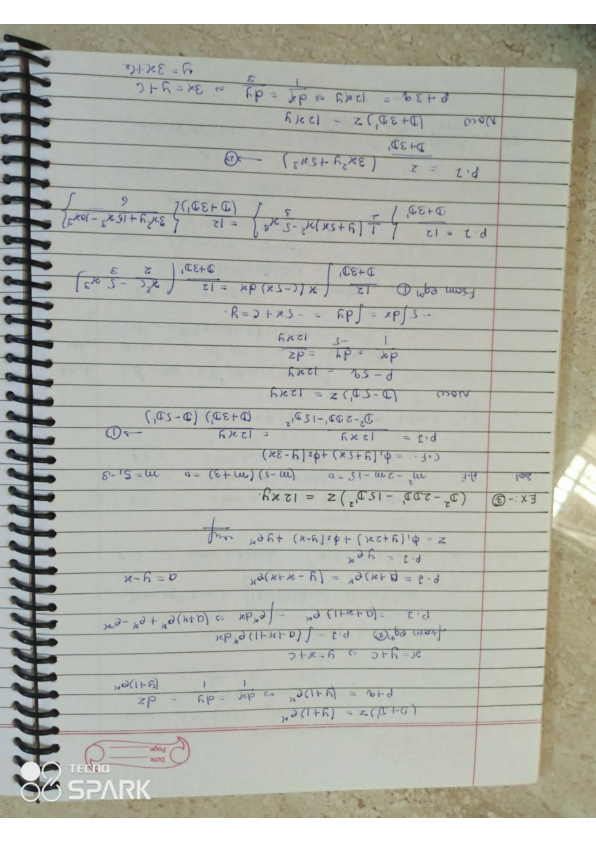 Date
Page
(D+D')z = (y+1)eˣ
p+q = (y+1)eˣ ⇒ dx/1 = dy/1 = dz/(y+1)eˣ
x = y+c ⇒ y = x+c
from eqⁿ② P.I = ∫(a+x+1)eˣ dx
P.I = (a+x+1)eˣ - ∫eˣ dx ⇒ (a+x)eˣ + eˣ - eˣ
P.I = (a+x)eˣ = (y-x+x)eˣ a = y-x
P.I = yeˣ
z = ϕ₁(y+2x) + ϕ₂(y-x) + yeˣ
Ex:-③ (D²-2DD'-15D'²)z = 12xy.
Sol A.E m²-2m-15=0 (m-5)(m+3)=0 m=5,-3
C.F. = ϕ₁(y+5x)+ϕ₂(y-3x)
P.I = 12xy/(D²-2DD'-15D'²) = 12xy/(D+3D')(D-5D') →①
Now (D-5D')z = 12xy
p-5q = 12xy
dx/1 = dy/-5 = dz/12xy
-5∫dx = ∫dy = -5x+c=y.
from eqⁿ① 12/(D+3D') ∫x(c-5x)dx = 12/(D+3D') {x²c/2 - 5x³/3}
P.I = 12/(D+3D') {1/2 (y+5x)x² - 5x³/3} = 12/(D+3D') {(3x²y+15x³-10x³)/6}
P.I = 2/(D+3D') (3x²y+5x³) →②
Now (D+3D')z = 12xy
p+3q = 12xy ⇒ dx/1 = dy/3 ⇒ 3x=y+c
y=3x+c
TECNO
SPARK